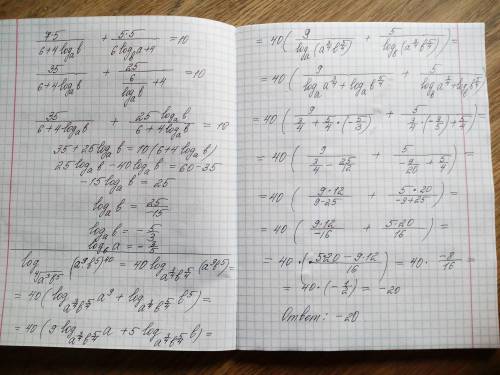 7·5/(6+4log_a b) + 5·5/(6log_b a+4) = 10
35/(6+4log_a b) + 25/(6/(log_a b) +4) = 10
35/(6+4log_a b) + 25log_a b/(6+4log_a b) = 10
35+25log_a b = 10(6+4log_a b)
25log_a b − 40log_a b = 60−35
−15log_a b = 25
log_a b = 25/−15
log_a b = −5/3
log_b a = −3/5
log_{⁴√(a³b⁵)} (a⁹b⁵)⁴⁰ = 40 log_{a^{3/4}b^{5/4}} (a⁹b⁵) =
= 40(log_{a^{3/4}b^{5/4}} a⁹ + log_{a^{3/4}b^{5/4}} b⁵) =
= 40(9 log_{a^{3/4}b^{5/4}} a + 5 log_{a^{3/4}b^{5/4}} b) =
= 40(9/(log_a (a^{3/4}b^{5/4})) + 5/(log_b (a^{3/4}b^{5/4}))) =
= 40(9/(log_a a^{3/4} + log_a b^{5/4}) + 5/(log_b a^{3/4} + log_b b^{5/4})) =
= 40(9/(3/4 + 5/4·(−5/3)) + 5/(3/4·(−3/5)+5/4)) =
= 40(9/(3/4 − 25/12) + 5/(−9/20 + 5/4)) =
= 40(9·12/(9−25) + 5·20/(−9+25)) =
= 40(9·12/−16 + 5·20/16) =
= 40·((5·20−9·12)/16) = 40·−8/16 =
= 40·(−1/2) = −20
Ответ: −20